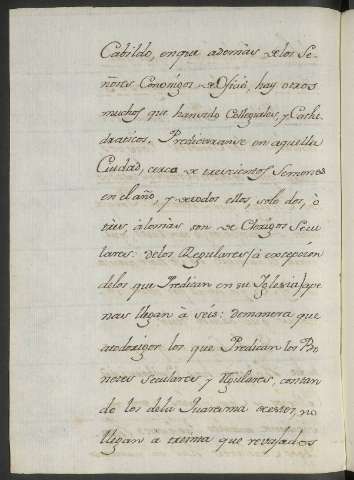 Cabildo, enque ademàs de los Se-
ñores Canonigos de Oficio, hay otros
muchos que han sido Collegiales, y Cathe
draticos. Predicaranse en aquella
Ciudad, cerca de trescientos Sermones
en el año, y de todos ellos, solo dos, ò
tres, àlomàs son de Clerigos Secu
lares: delos Regulares (à excepcion
delos que Predican en su Iglesia) ape
nas llegan à seis: demanera que
atodorigor los que Predican los Bo
netes seculares y Rg̃ulares, contan
do los dela Quaresma no
llegan à treinta que